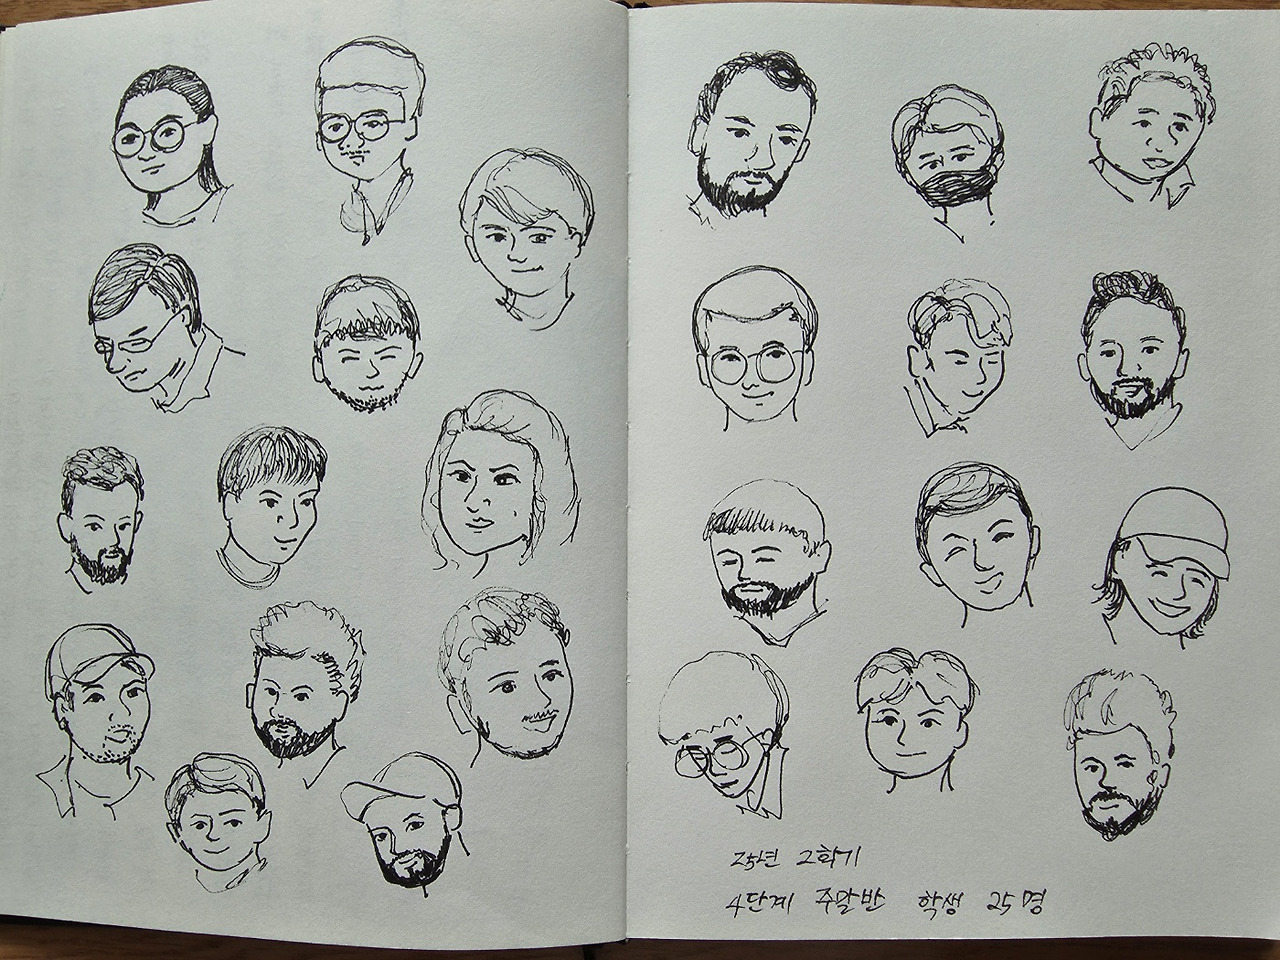 25년 2학기
4단계 주말반 학생 25명